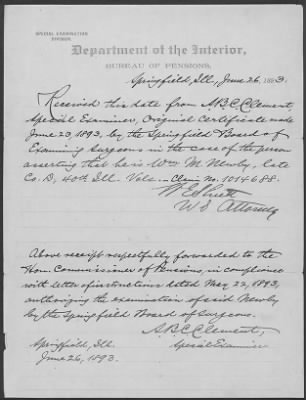 SPECIAL EXAMINATION
DIVISION.
Department of the Interior,
BUREAU OF PENSIONS,
Springfield, Ill., June 26, 1893.
Received this date from A.B.C. Clement,
Special Examiner, Original Certificate made
June 23, 1893, by the Springfield Board of
Examining Surgeons in the case of the person
asserting that he is Wm M. Newby, late
Co. D, 40th Ill. Vols. – Claim No. 1014688.
U S Attorney
Above receipt respectfully forwarded to the
Hon. Commissioner of Pensions, in compliance
with letter of instructions dated May 22, 1893,
authorizing the examination of said Newby
by the Springfield Board of Surgeons.
A.B.C. Clement,
Springfield, Ill. Special Examiner
June 26, 1893.